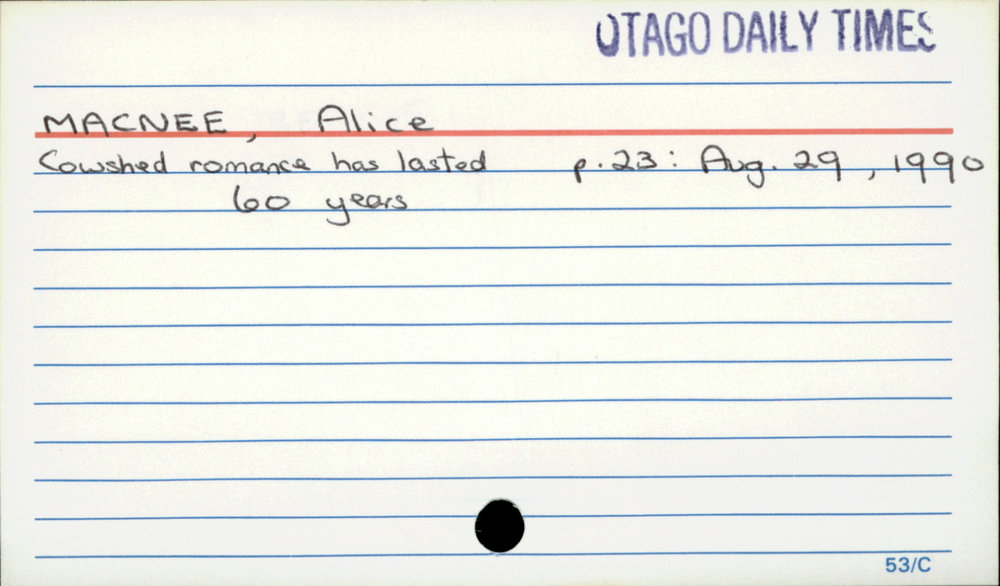 OTAGO DAILY TIMES
MACNEE, Alice
Cowshed romance has lasted p.23: Aug. 29, 1990
60 years
53/C